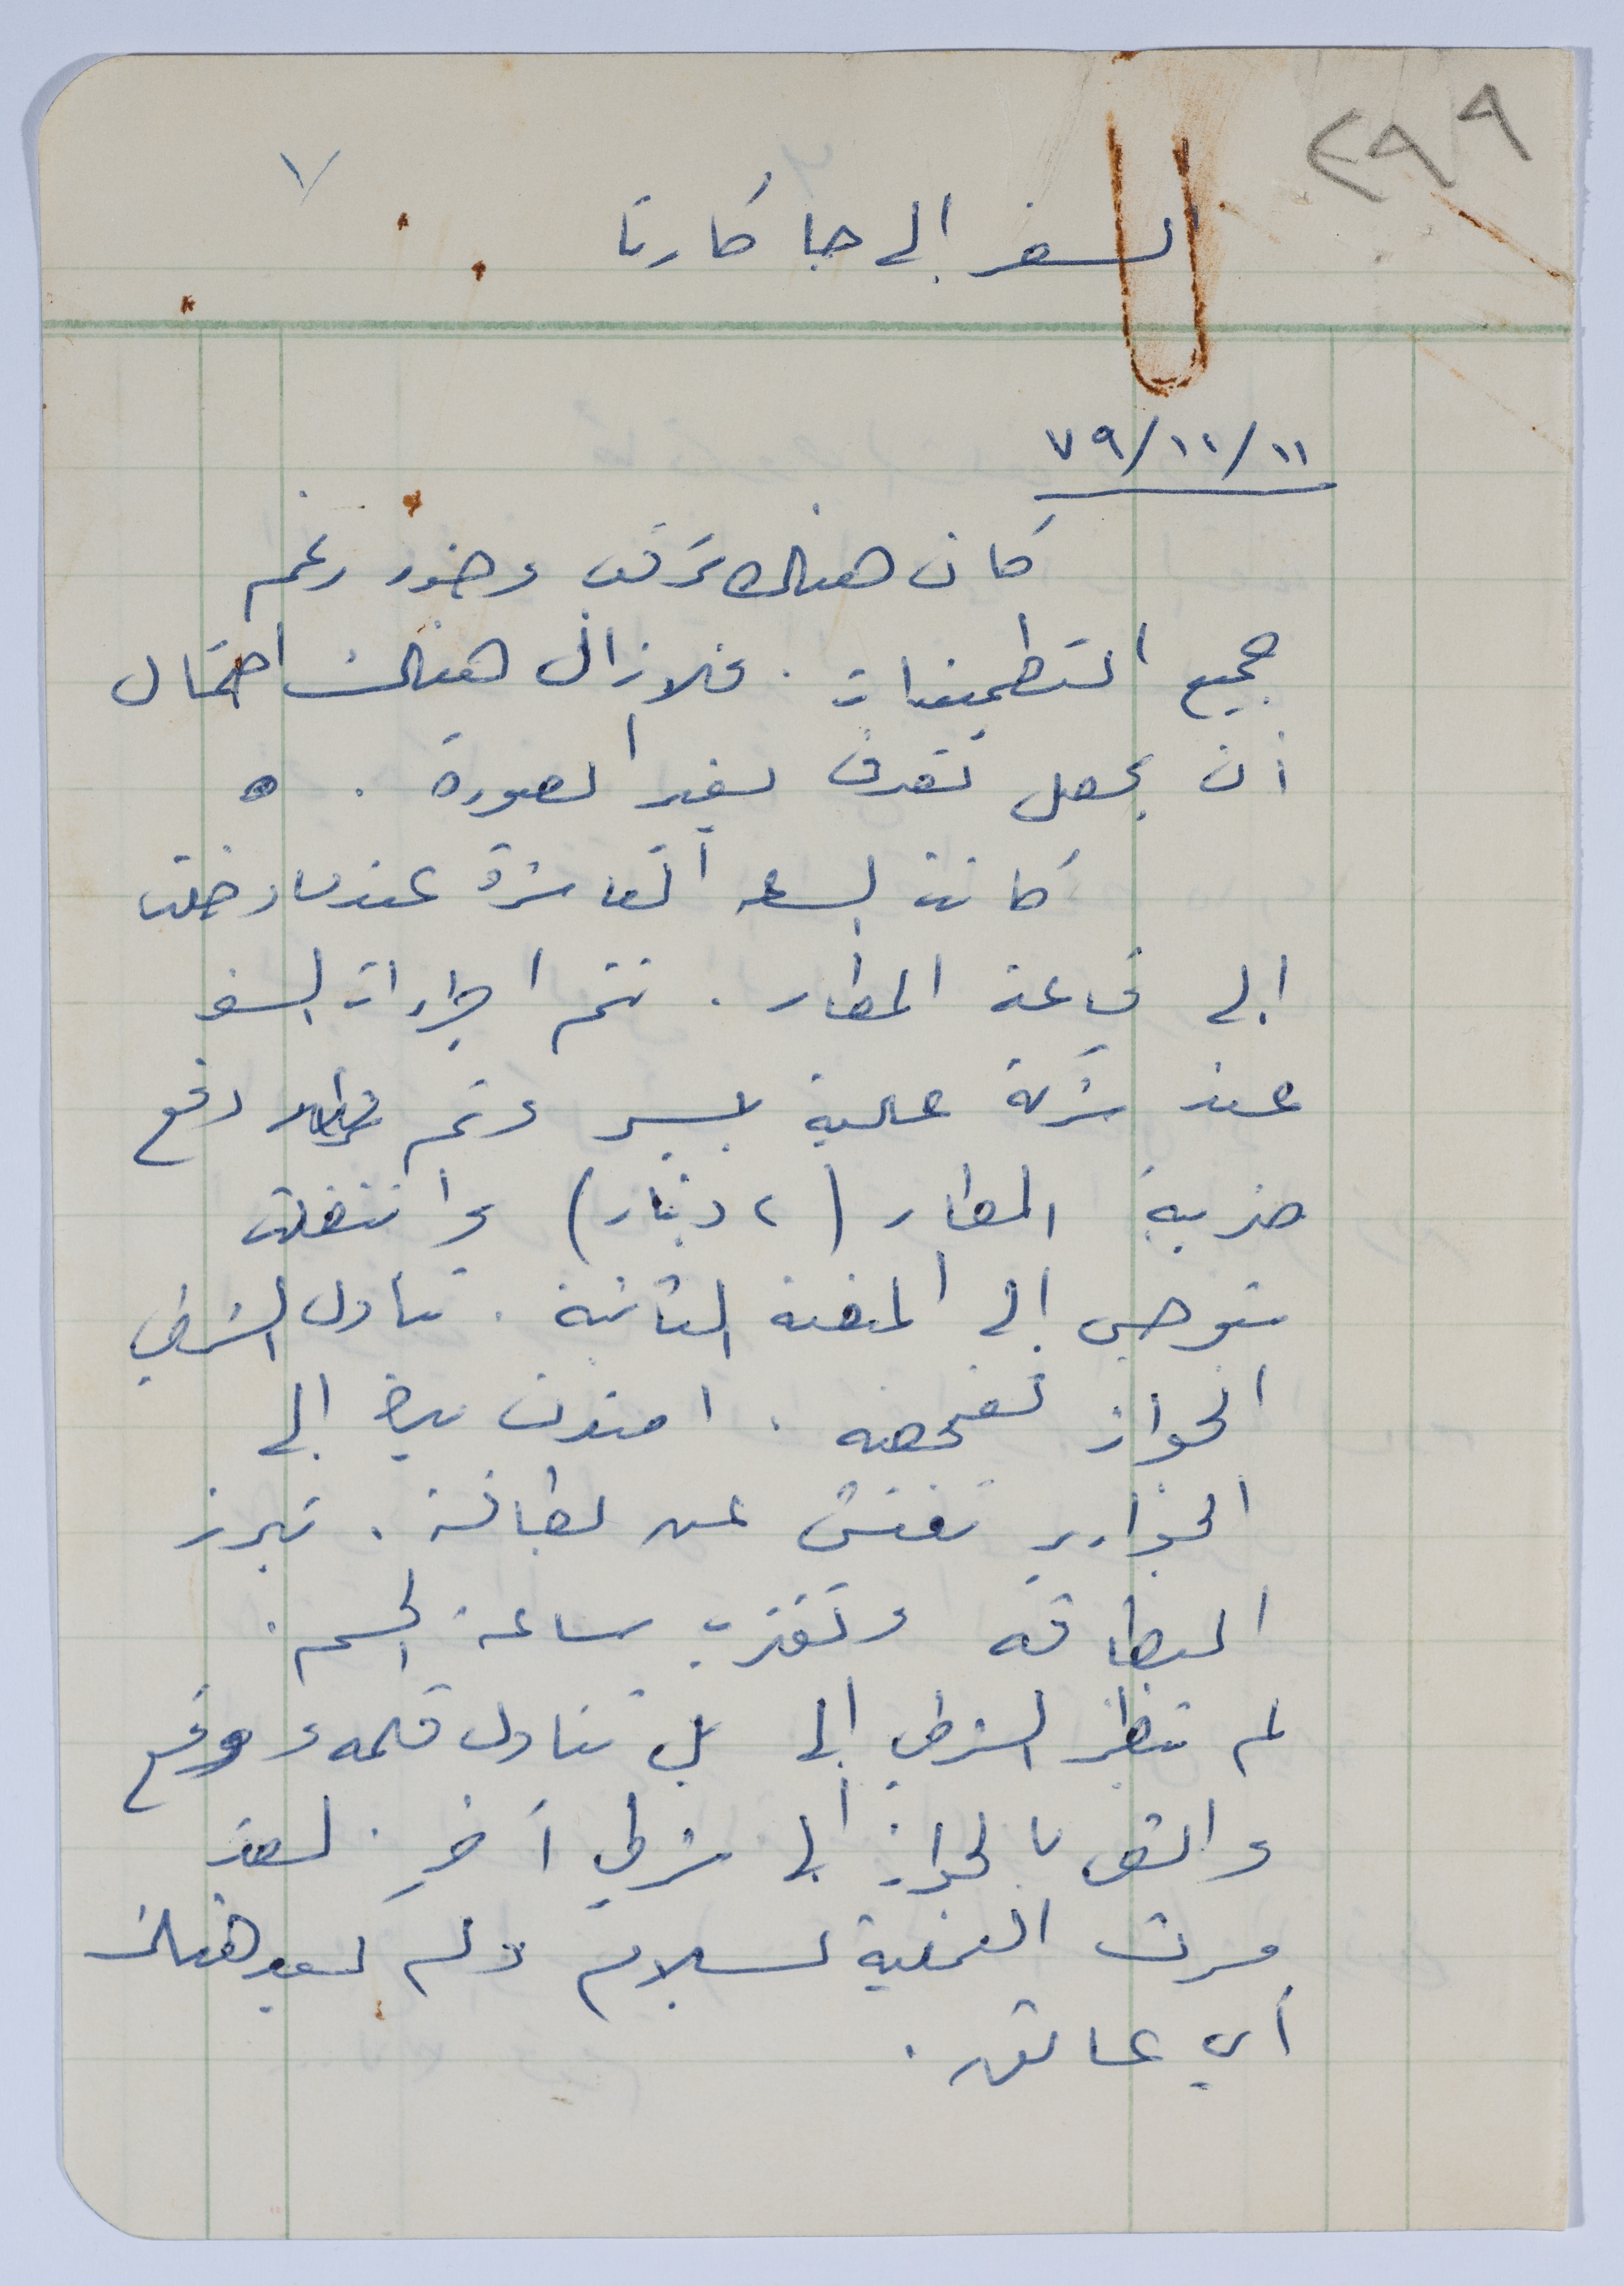 ٢٩٩
٧
السفر إلى جاكارتا
٧٩/١١/١١
كان هناك ترقب وحذر رغم
جميع التطمينات . فلا زال هناك احتمال
أن يحصل تغير الصورة .
كانت الساعه العاشرة عندما دخلت
إلى قاعة المطار . تتم اجراءات السفر
عند شركة عالية بيسر وتم دفع
ضريبة المطار (٢ دينار) وانتقلت
إلى المنصة الثانية . تناول الشرطي
الجواز تفحصه . امتدت يده إلى
الجوارير تفتش عن بطاقة . تبرز
البطاقه وتقترب ساعة الحسم .
لم ينظر الشرطي إلي بل تناول قلمه ووقع
والقى بالجواز إلى شرطي آخر . لقد
مرت العملية بسلام ولم يعد هناك
أي عائق .